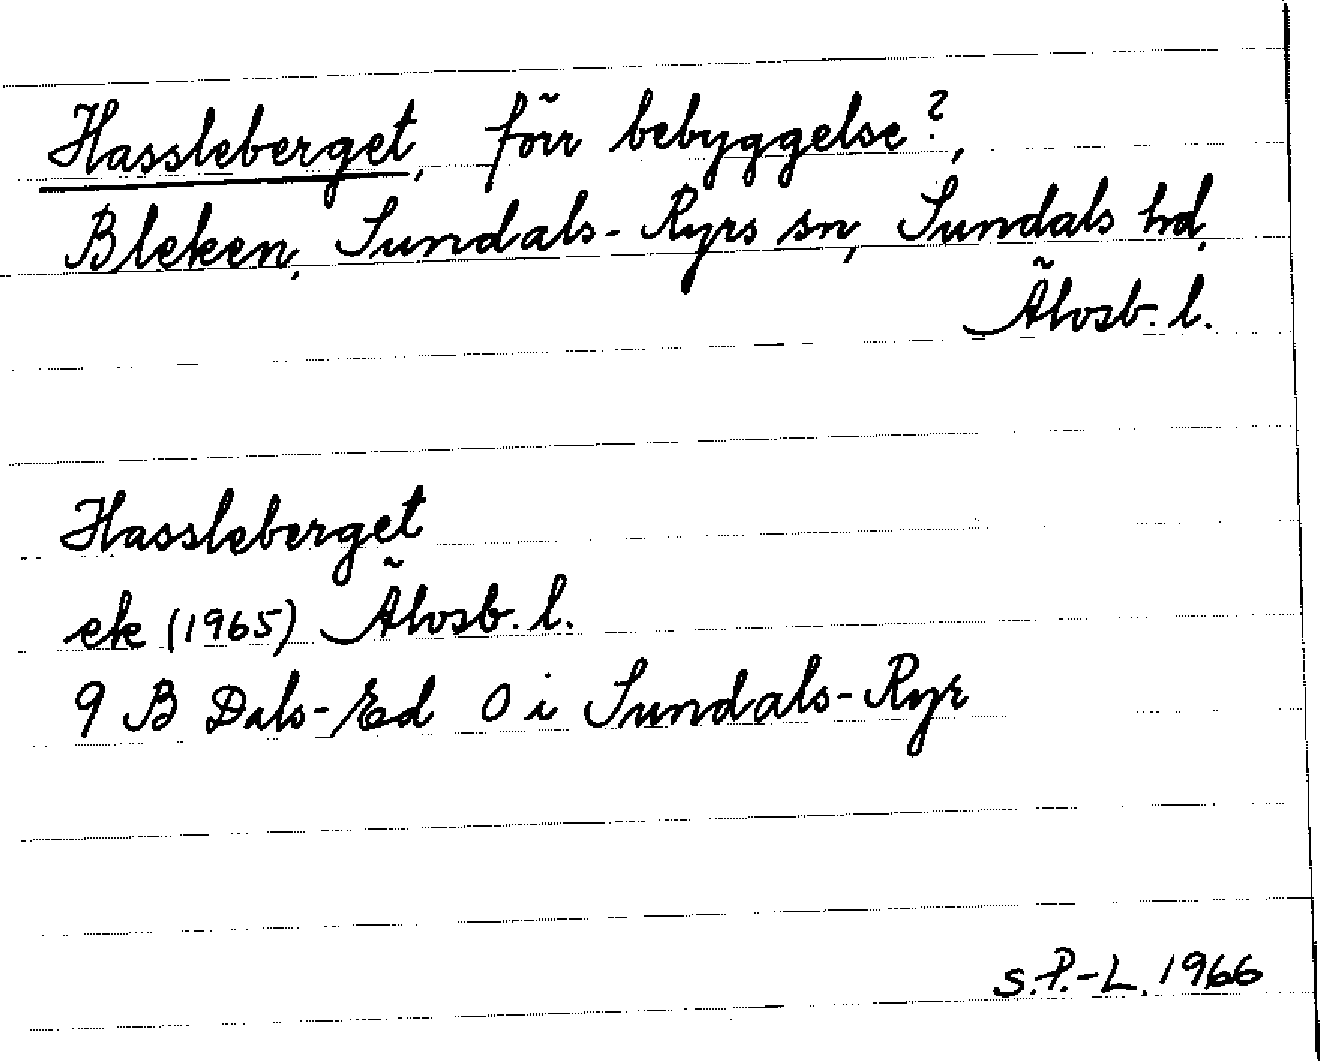 Hassleberget, förr bebyggelse?,
Bleken, Sundals-Ryrs sn, Sundals hd,
Älvsb. l.
Hassleberget
ek (1965) Älvsb. l.
9 B Dals-Ed O i Sundals-Ryr
S.P.-L. 1966